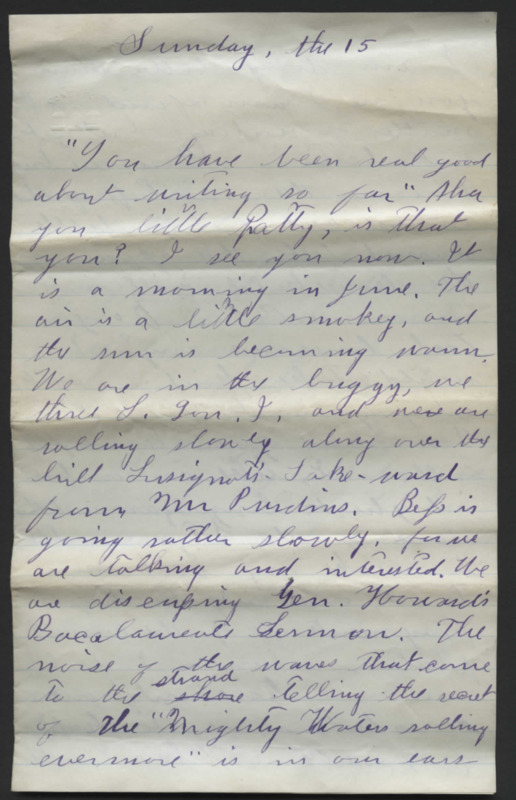 Sunday, the 15
"You have been real good
about writing so far" Aha
you little Patty, is that
you? I see you now. It
is a morning in June. The
air is a little smokey, and
the sun is becoming warm.
We are in the buggy, we
three S. Gen. I, and we are
rolling slowly along over the
hill Lake-ward
from Mr Purdins. Bess is
going rather slowly, for we
are talking and interested. We
are discussing Gen. Howard's
Bacalaureate Sermon. The
noise of the waves that come
to the strand telling the secret
of the "Mighty Waters rolling
evermore" is in our ears